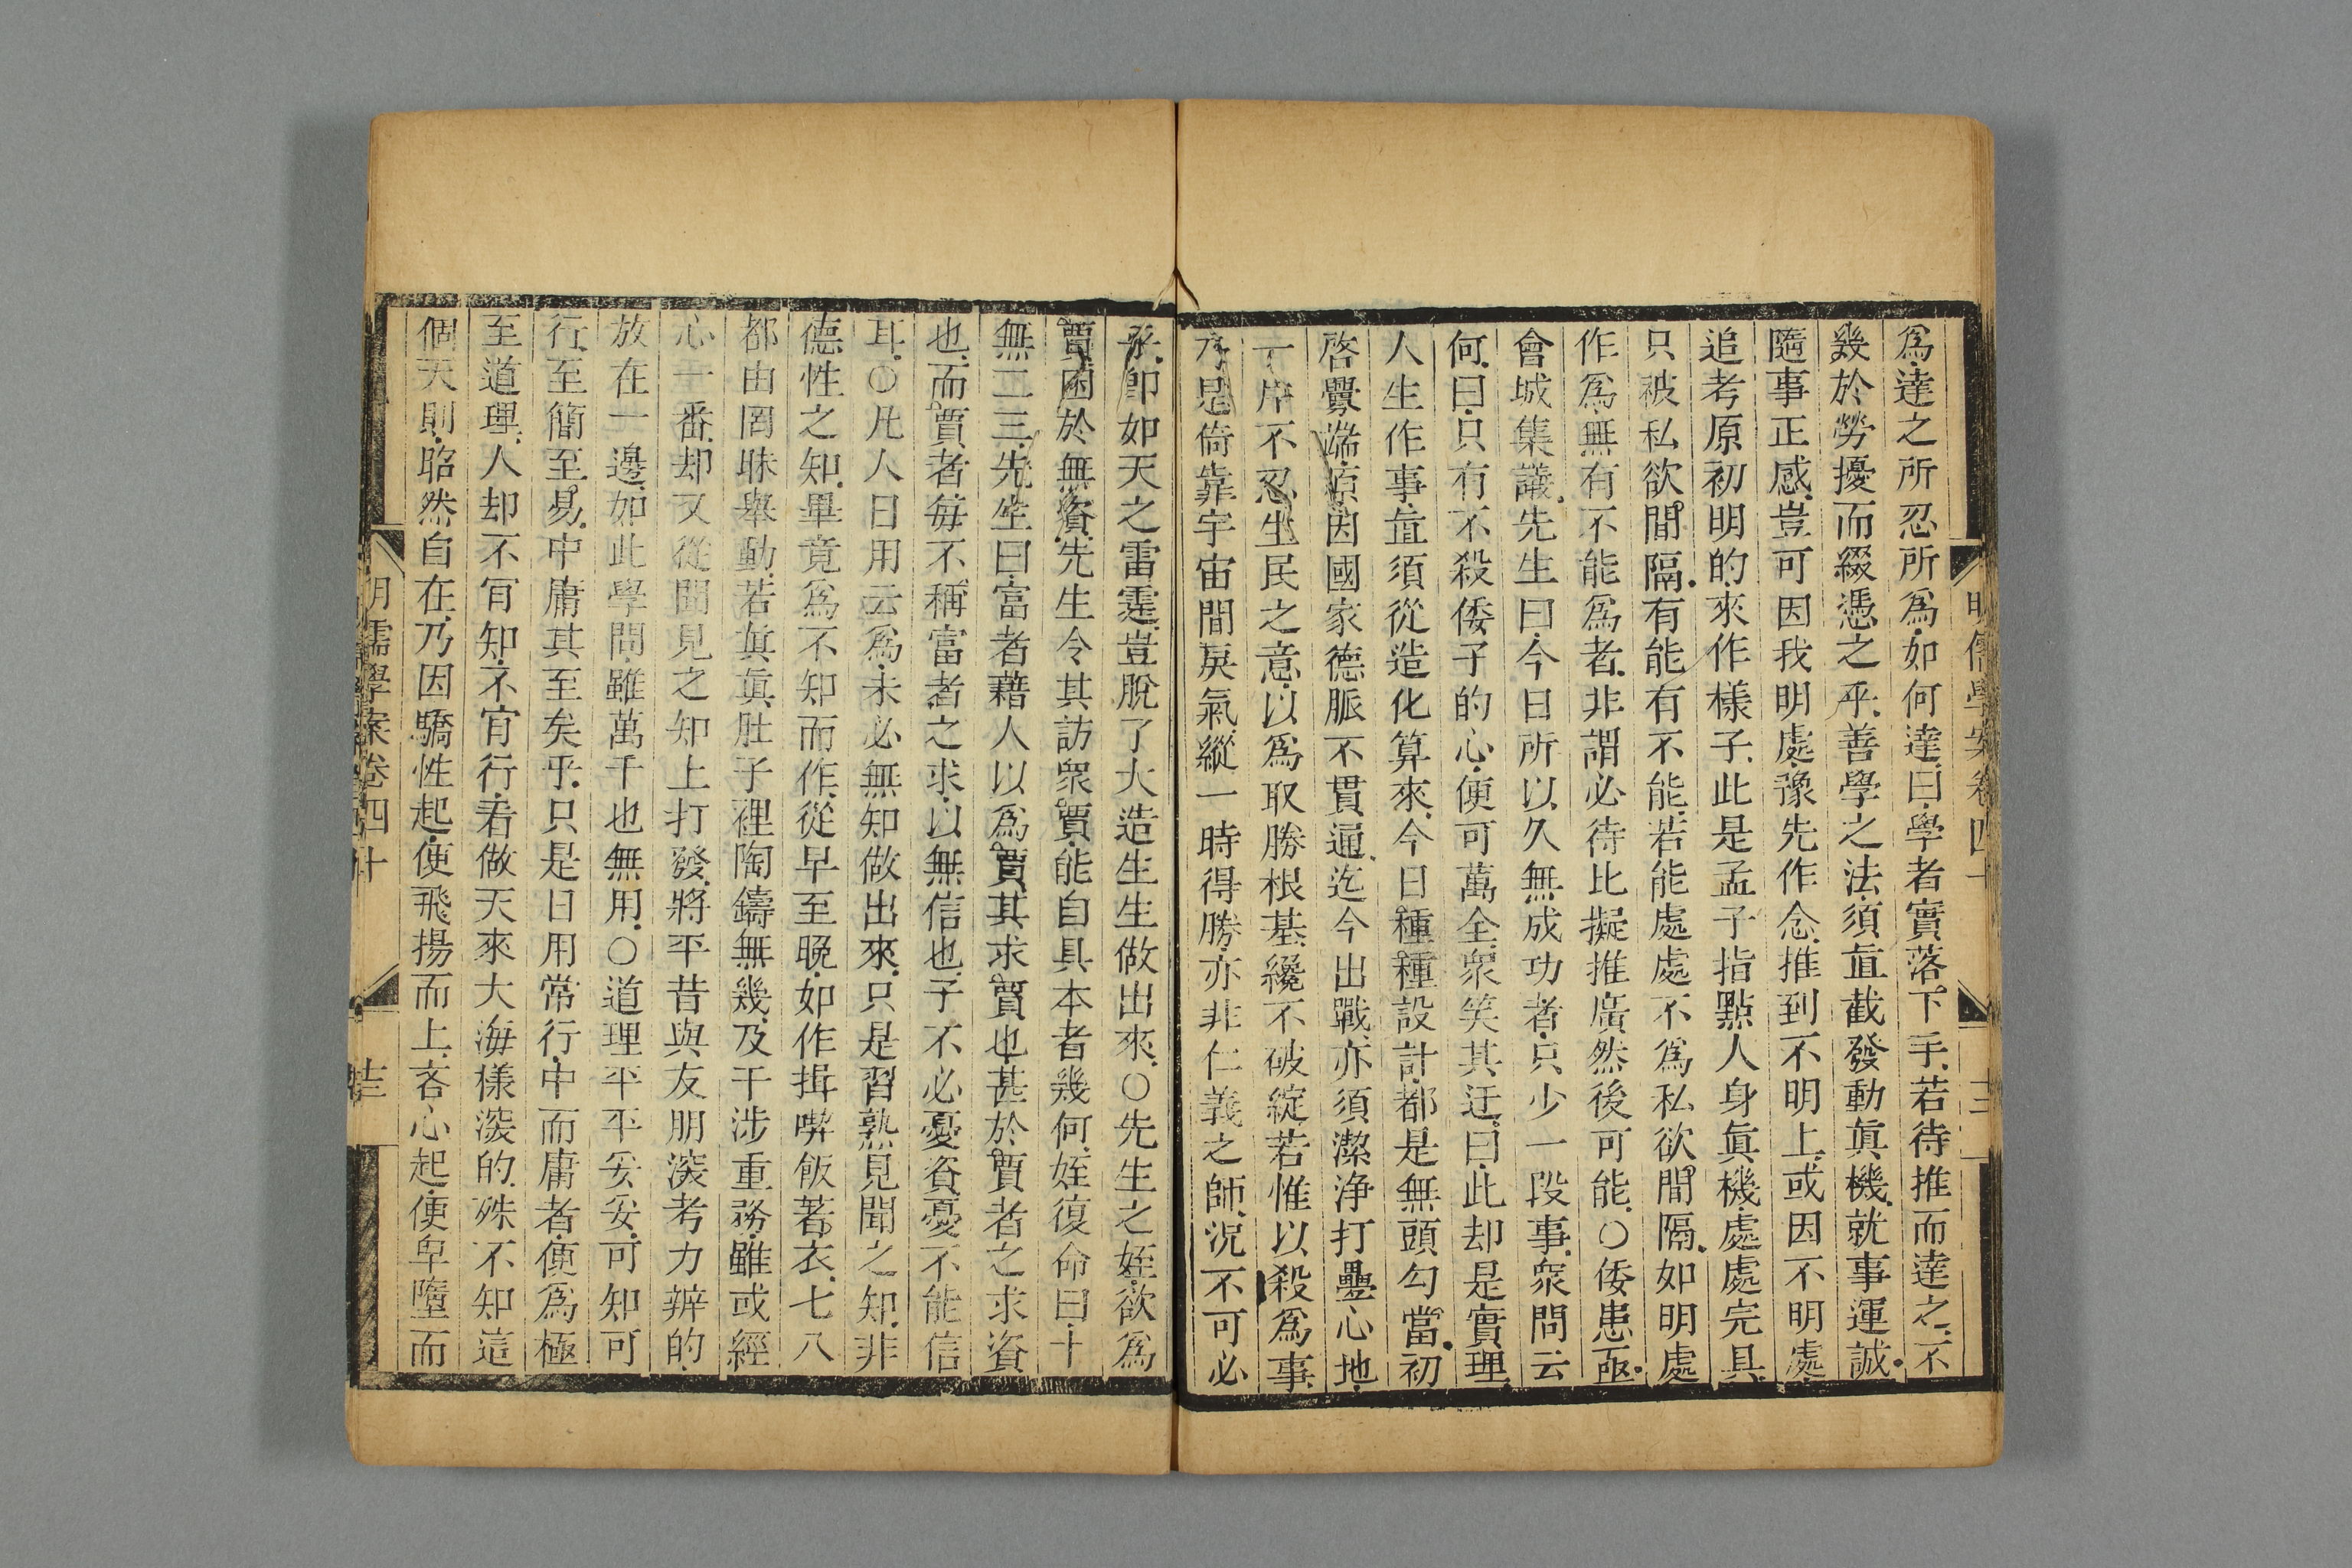 為達之所忍所為如何達曰學者實落下手若待推而達之不
幾於勞擾而綴憑之乎善學之法須直截發動眞機就事運誠
隨事正感豈可因我明處豫先作念推到不明上或因不明處
追考原初明的來作樣子此是孟子指點人身眞機處處完具
只被私欲間隔有能有不能若能處處不為私欲間隔如明處
作為無有不能為者非謂必待比擬推廣然後可能○倭患亟
會城集議先生曰今日所以久無成功者只少一段事衆問云
何曰只有不殺倭子的心便可萬全衆笑其迂曰此却是實理
人生作事直須從造化算來今日種種設計都是無頭勾當初
啓釁端原因國家德脈不貫通迄今出戰亦須潔淨打疊心地
一片不忍生民之意以為取勝根基纔不破綻若惟以殺為事
是倚靠宇宙間戾氣縱一時得勝亦非仁義之師況不可必
乎卽如天之雷霆豈脫了大造生生做出來○先生之姪欲為
賈困於無資先生令其訪衆賈能自具本者幾何姪復命曰十
無二三先生曰富者藉人以為賈其求賈也甚於賈者之求資
也而賈者每不稱富者之求以無信也子不必憂資憂不能信
耳○凡人日用云為未必無知做出來只是習熟見聞之知非
德性之知畢竟為不知而作從早至晚如作揖喫飯著衣七八
都由罔昧舉動若眞眞肚子裡陶鑄無幾及干涉重務雖或經
心一番却又從聞見之知上打發將平昔與友朋深考力辨的
放在一邊如此學問雖萬千也無用○道理平平妥妥可知可
行至簡至易中庸其至矣乎只是日用常行中而庸者便為極
至道理人却不肯知不肯行看做天來大海樣深的殊不知這
個天則昭然自在乃因驕性起便飛揚而上吝心起便卑墮而
明儒學案卷四十